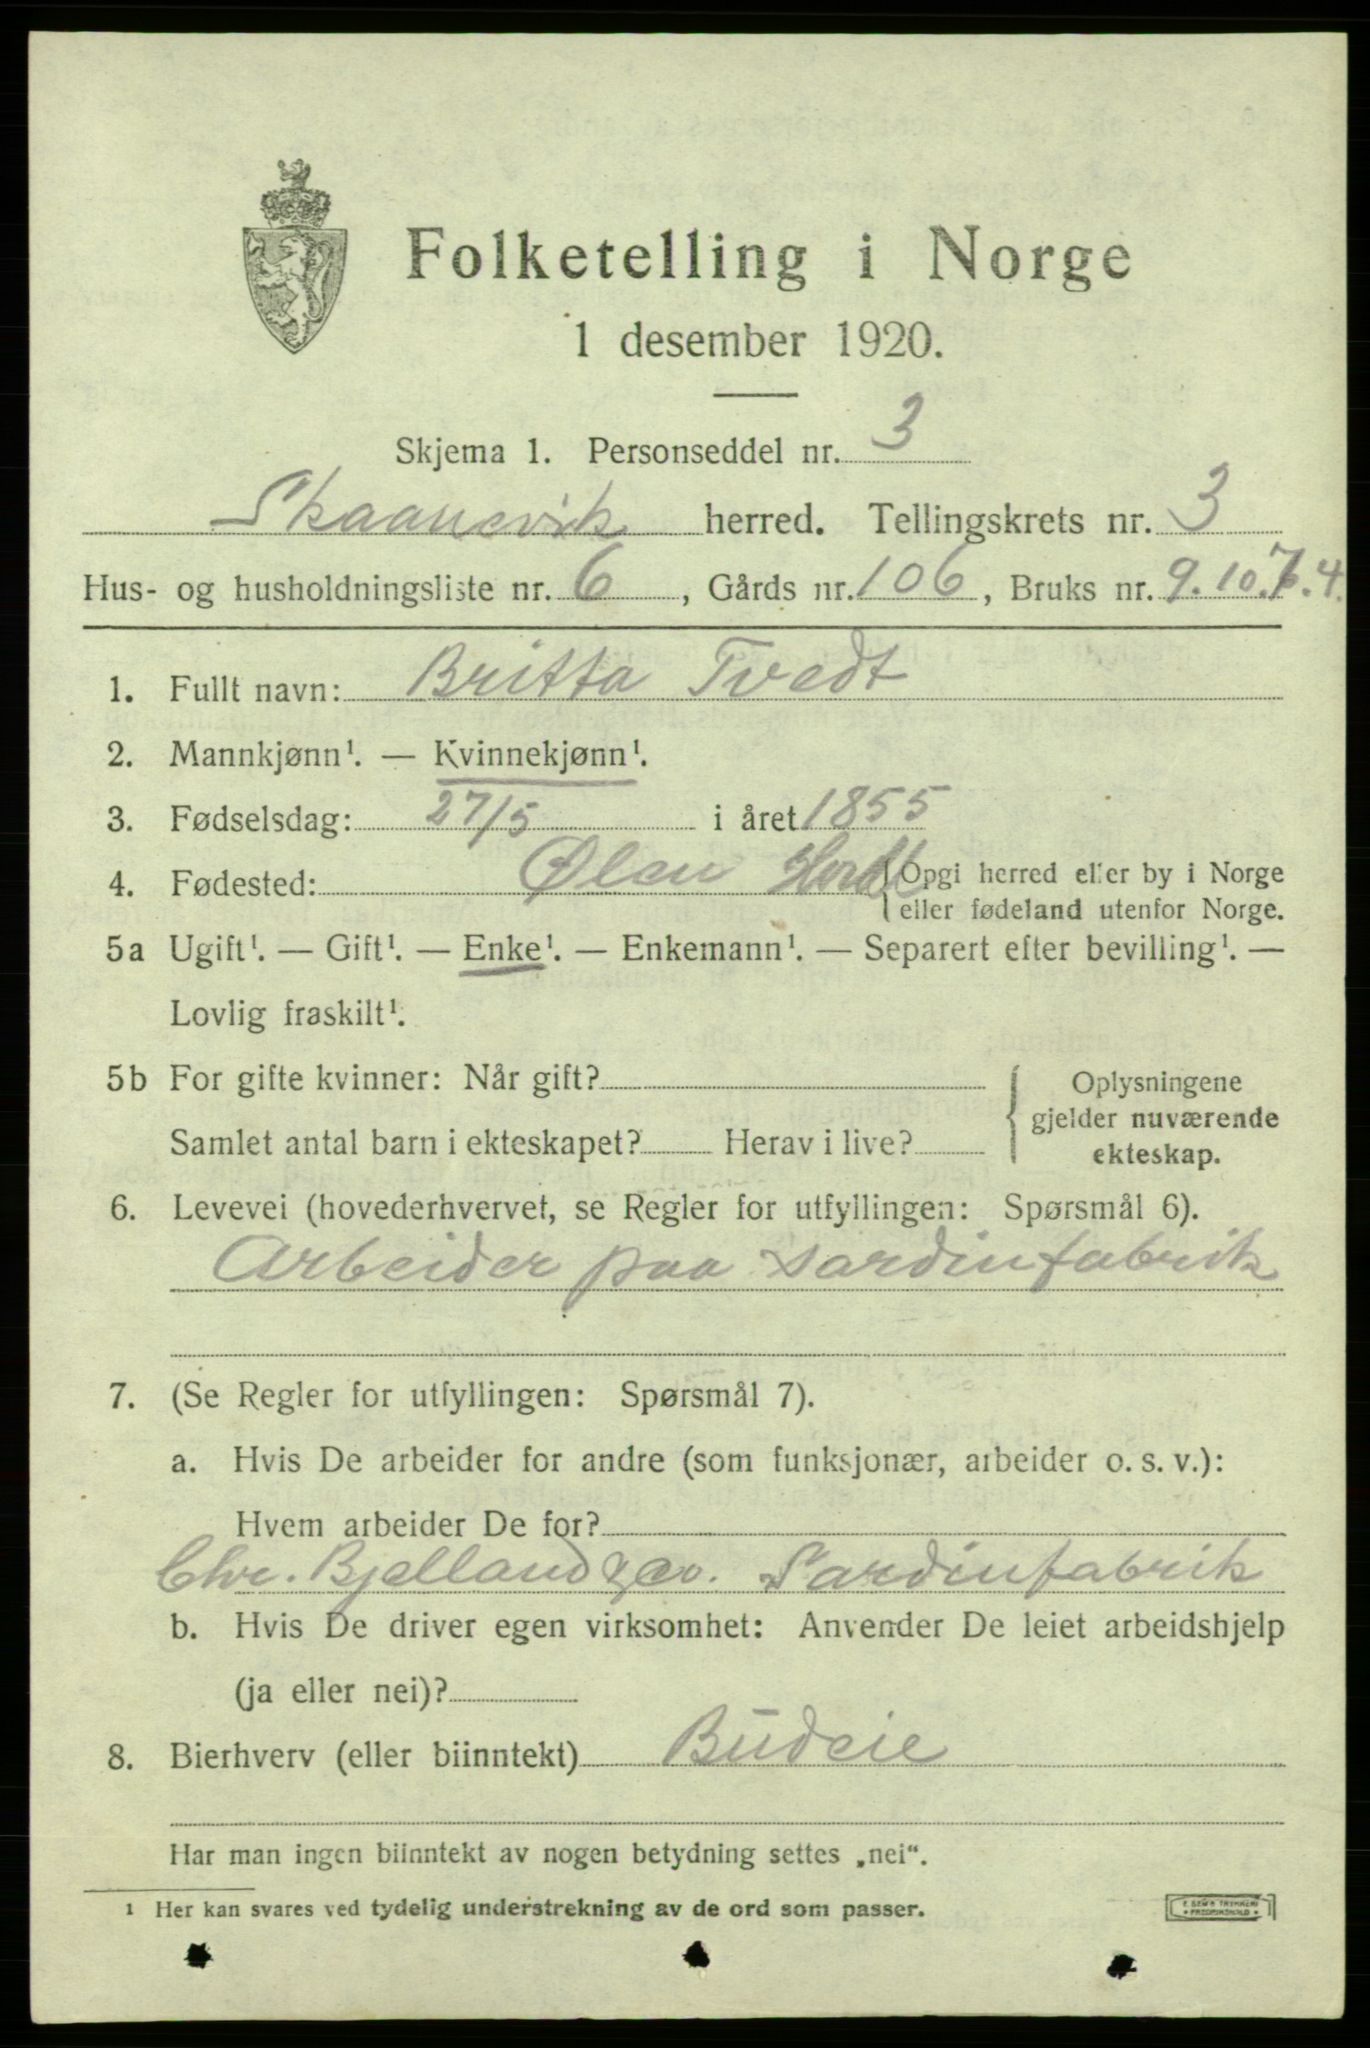 Folketelling i Norge
1 desember 1920.
Skjema 1. Personseddel nr. 3
Skaanevik herred. Tellingskrets nr. 3
Hus- og husholdningsliste nr. 6, Gårds nr. 106, Bruks nr. 9.10.7.4.
1. Fullt navn: Britta Tvedt
2. Mannkjønn¹. — Kvinnekjønn¹.
3. Fødselsdag: 27/5 i året 1855
4. Fødested: Ølen Hordl {Opgi herred eller by i Norge
eller fødeland utenfor Norge.
5a Ugift¹. — Gift¹. — Enke¹. — Enkemann¹. — Separert efter bevilling¹. —
Lovlig fraskilt¹.
5b For gifte kvinner: Når gift? Oplysningene
gjelder nuværende
Samlet antal barn i ekteskapet? Herav i live? ekteskap.
6. Levevei (hovederhvervet, se Regler for utfyllingen: Spørsmål 6).
Arbeider paa Sardinfabrik
7. (Se Regler for utfyllingen: Spørsmål 7).
a. Hvis De arbeider for andre (som funksjonær, arbeider o. s. v.):
Hvem arbeider De for?
Chr. Bjelland & Co. Sardinfabrik
b. Hvis De driver egen virksomhet: Anvender De leiet arbeidshjelp
(ja eller nei)?
8. Bierhverv (eller biinntekt) Budeie
Har man ingen biinntekt av nogen betydning settes „nei“.
1 Her kan svares ved tydelig understrekning av de ord som passer.